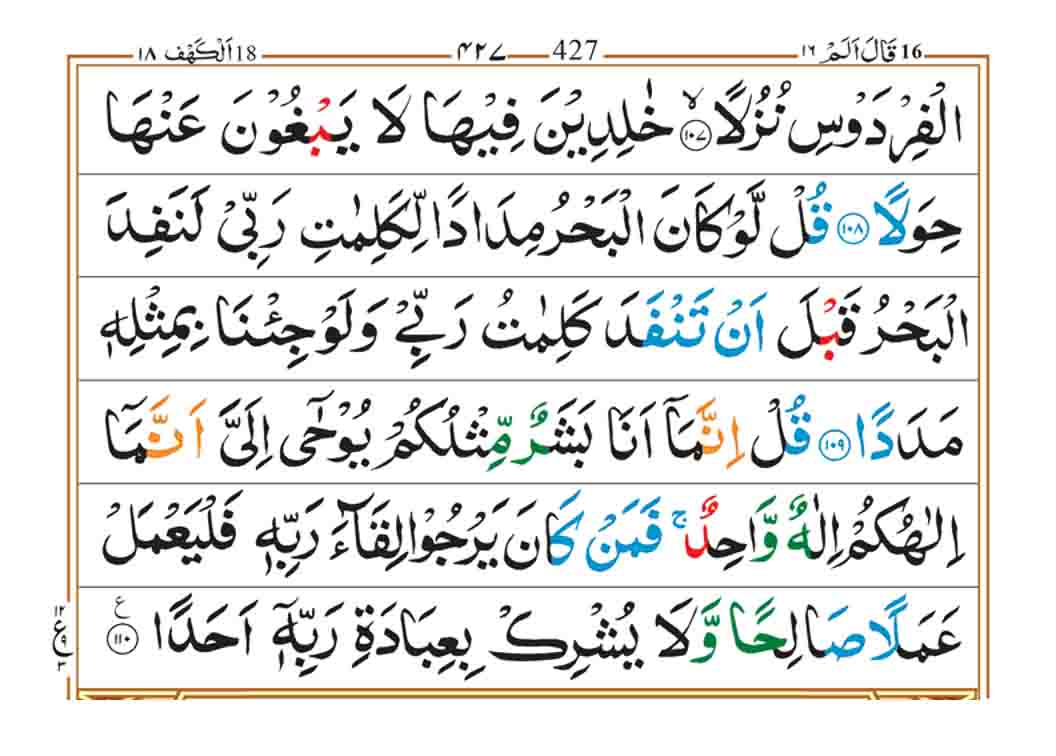 16 قَالَ اَلَمْ ١٦ 427 ٤٢٧ 18 اَلْكَهْف ١٨
الْفِرْدَوْسِ نُزُلًا ۙ ١٠٧ خٰلِدِيْنَ فِيْهَا لَا يَبْغُوْنَ عَنْهَا
حِوَلًا ١٠٨ قُلْ لَّوْ كَانَ الْبَحْرُ مِدَادًا لِّكَلِمٰتِ رَبِّيْ لَنَفِدَ
الْبَحْرُ قَبْلَ اَنْ تَنْفَدَ كَلِمٰتُ رَبِّيْ وَلَوْ جِئْنَا بِمِثْلِهٖ
مَدَدًا ١٠٩ قُلْ اِنَّمَآ اَنَا بَشَرٌ مِّثْلُكُمْ يُوْحٰٓى اِلَيَّ اَنَّمَآ
اِلٰهُكُمْ اِلٰهٌ وَّاحِدٌ ۚ فَمَنْ كَانَ يَرْجُوْا لِقَآءَ رَبِّهٖ فَلْيَعْمَلْ
عَمَلًا صَالِحًا وَّلَا يُشْرِكْ بِعِبَادَةِ رَبِّهٖٓ اَحَدًا ١١٠ ع
١٢
ع
٩
٣